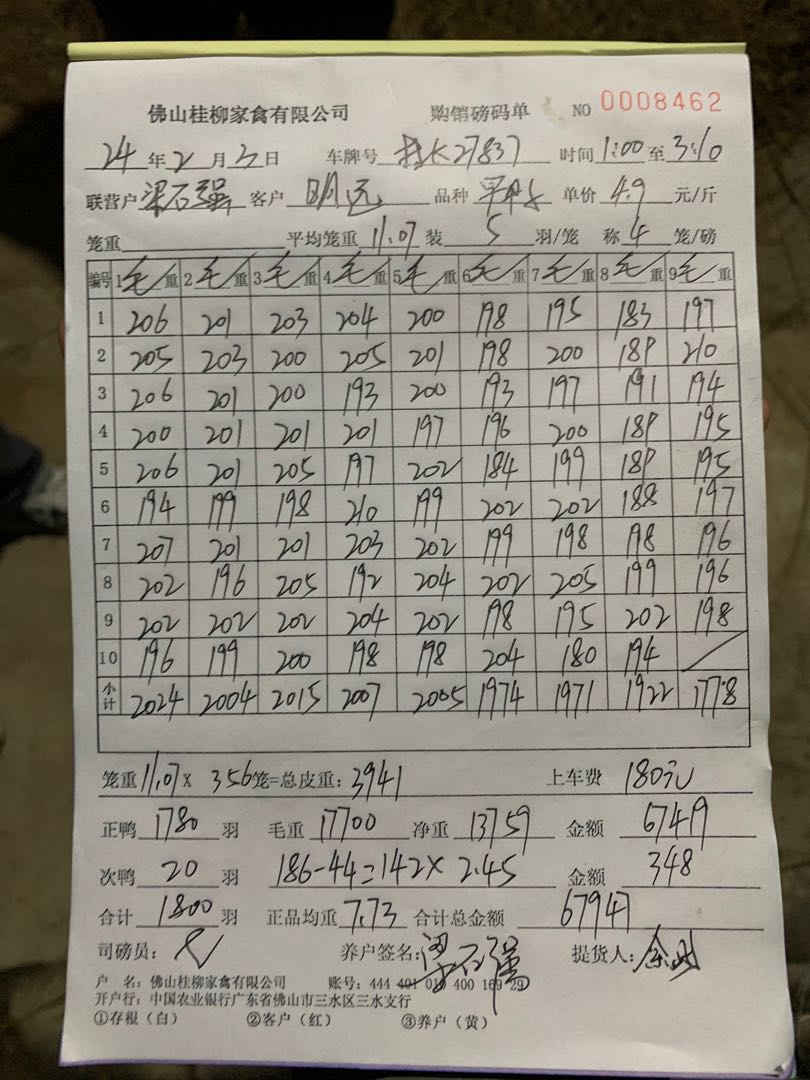 佛山桂柳家禽有限公司 购销磅码单 NO 0008462
24年2月3日 车牌号 27837 时间1:00至3:10
联营户梁石强 客户 明远 品种 单价4.9元/斤
笼重 平均笼重11.07装 5 羽/笼 称4笼/磅
编号 1毛/重 2毛/重 3毛/重 4毛/重 5毛/重 6毛/重 7毛/重 8毛/重 9毛/重
1 206 201 203 204 200 198 195 183 197
2 205 203 200 205 201 198 200 189 210
3 206 201 200 193 200 193 197 191 194
4 200 201 201 201 197 196 200 189 195
5 206 201 205 197 202 184 199 189 195
6 194 199 198 210 199 202 202 188 197
7 207 201 201 203 202 199 198 198 196
8 202 196 205 192 204 202 205 199 196
9 202 202 202 204 202 198 195 202 198
10 196 199 200 198 198 204 180 194 /
小计 2024 2004 2015 2007 2005 1974 1971 1922 1778
笼重11.07× 356笼=总皮重:3941 上车费 180元
正鸭 1780 羽 毛重 17700 净重 13759 金额 67419
次鸭 20 羽 186-44=142× 2.45 金额 348
合计 1800 羽 正品均重 7.73 合计总金额 67947
司磅员: 养户签名:梁石强 提货人:
户 名:佛山桂柳家禽有限公司 账号:444 401 010 400 169 29
开户行:中国农业银行广东省佛山市三水区三水支行
①存根(白) ②客户(红) ③养户(黄)